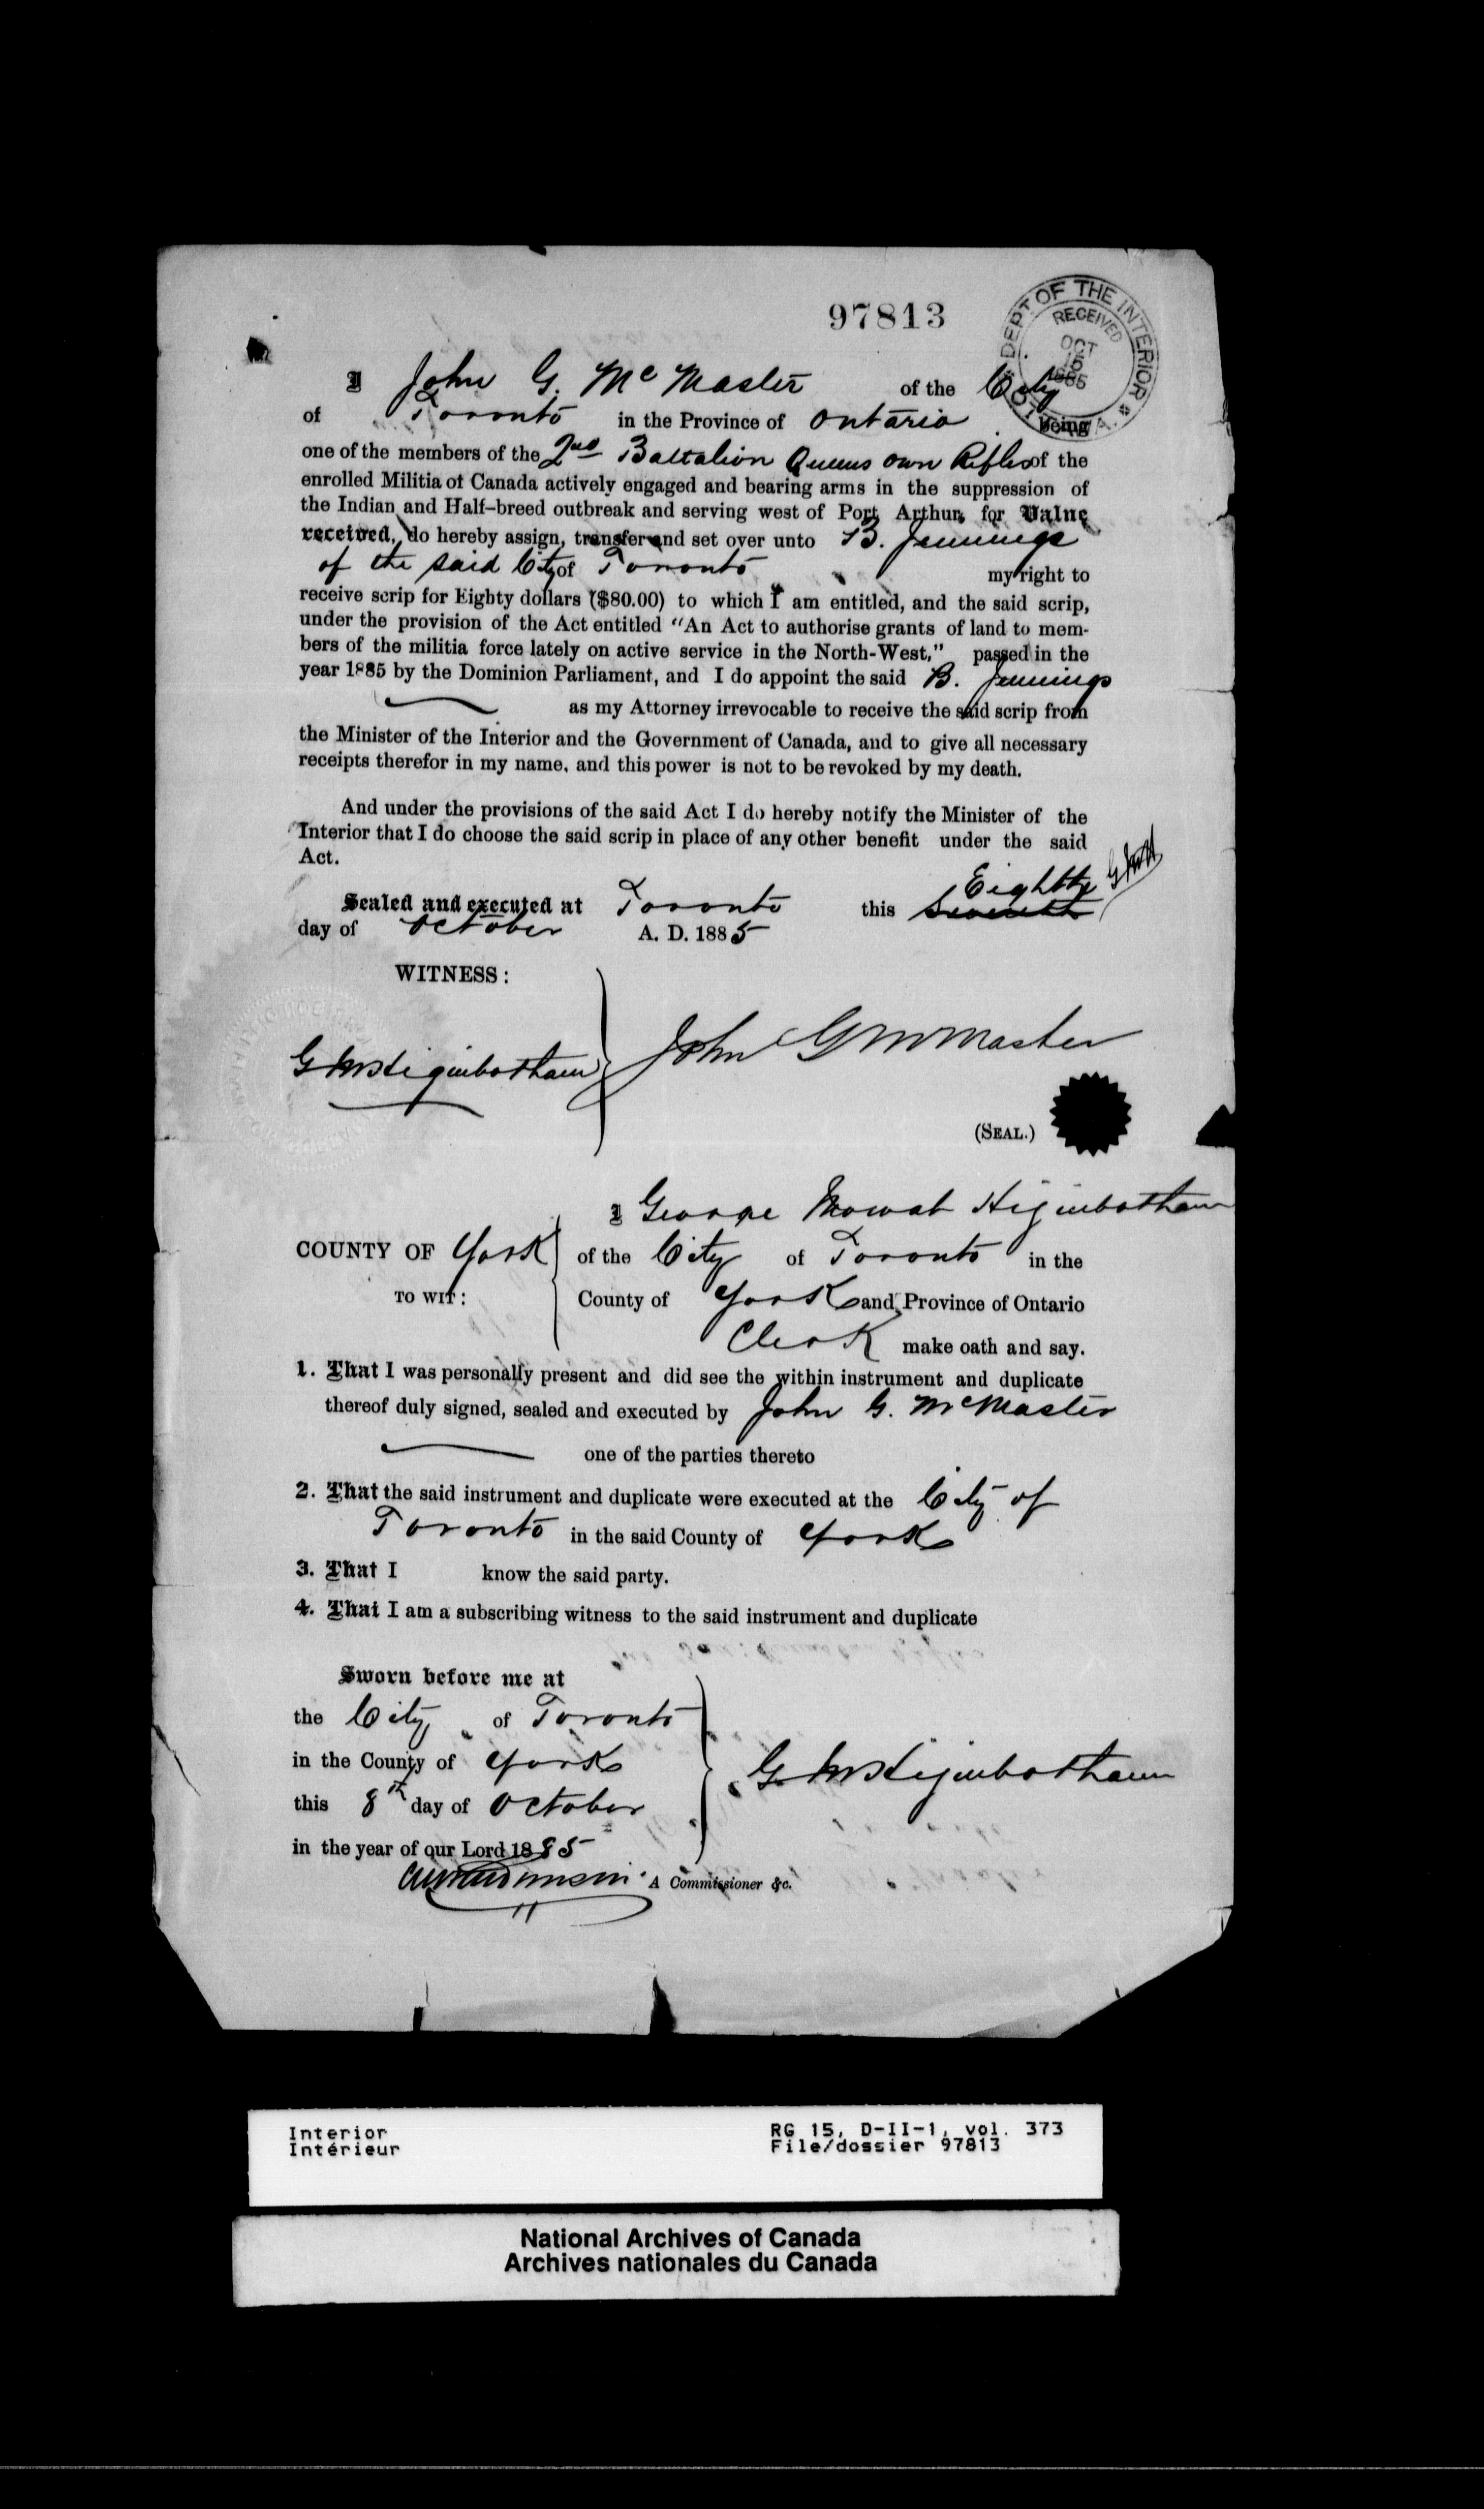 97813
DEPT. OF THE INTERIOR
RECEIVED
OCT
15
1885
I John G. McMaster of the City
of Toronto in the Province of Ontario being
one of the members of the 2nd Battalion Queens Own Rifles of the
enrolled Militia of Canada actively engaged and bearing arms in the suppression of
the Indian and Half-breed outbreak and serving west of Port Arthur, for Value
received, do hereby assign, transfer and set over unto B. Jennings
of the said City of Toronto my right to
receive scrip for Eighty dollars ($80.00) to which I am entitled, and the said scrip,
under the provision of the Act entitled "An Act to authorise grants of land to mem-
bers of the militia force lately on active service in the North-West," passed in the
year 1885 by the Dominion Parliament, and I do appoint the said B. Jennings
as my Attorney irrevocable to receive the said scrip from
the Minister of the Interior and the Government of Canada, and to give all necessary
receipts therefor in my name, and this power is not to be revoked by my death.
And under the provisions of the said Act I do hereby notify the Minister of the
Interior that I do choose the said scrip in place of any other benefit under the said
Act.
Eighth GMH
Sealed and executed at Toronto this Seventh
day of October A. D. 1885
WITNESS:
GM Higinbotham John G McMaster
(SEAL.)
I George Mowat Higinbotham
COUNTY OF York of the City of Toronto in the
TO WIT: County of York and Province of Ontario
Clerk make oath and say.
1. That I was personally present and did see the within instrument and duplicate
thereof duly signed, sealed and executed by John G. McMaster
one of the parties thereto
2. That the said instrument and duplicate were executed at the City of
Toronto in the said County of York
3. That I know the said party.
4. That I am a subscribing witness to the said instrument and duplicate
Sworn before me at
the City of Toronto
in the County of York
this 8th day of October
in the year of our Lord 1885
GM Higinbotham
A Commissioner &c.
Interior RG 15, D-II-1, vol. 373
Intérieur File/dossier 97813
National Archives of Canada
Archives nationales du Canada